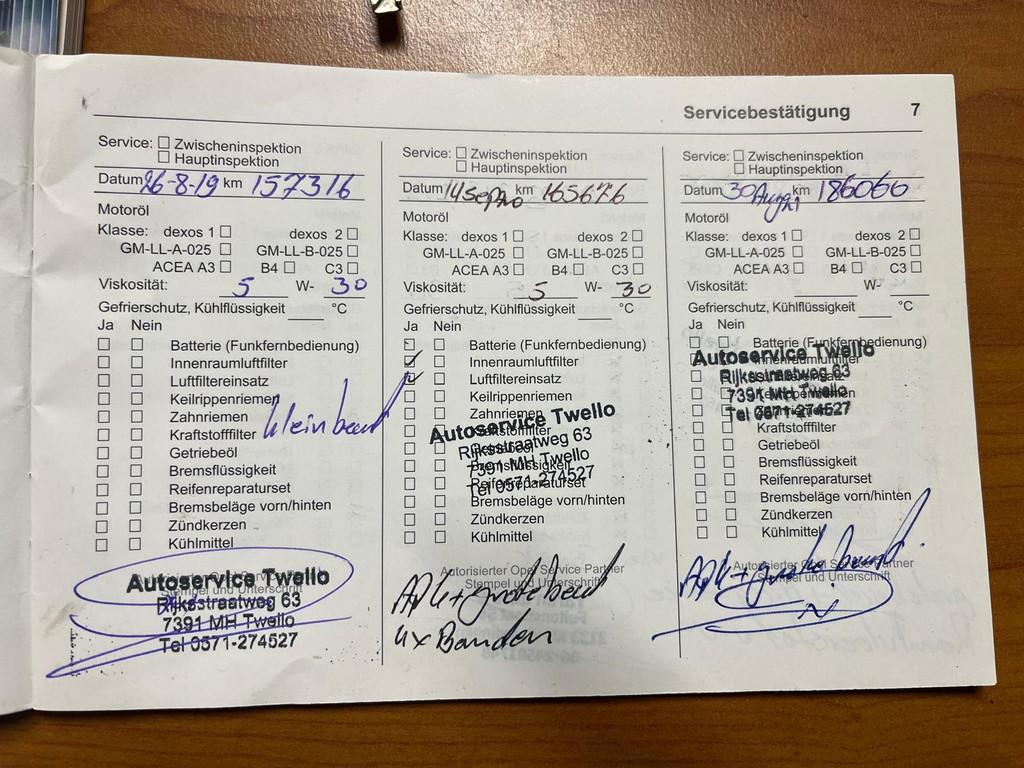 Servicebestätigung 7
Service: Zwischeninspektion
Hauptinspektion
Datum 26-8-19 km 157316
Motoröl
Klasse: dexos 1 dexos 2
GM-LL-A-025 GM-LL-B-025
ACEA A3 B4 C3
Viskosität: 5 W- 30
Gefrierschutz, Kühlflüssigkeit °C
Ja Nein
Batterie (Funkfernbedienung)
Innenraumluftfilter
Luftfiltereinsatz
Keilrippenriemen
Zahnriemen
Kraftstofffilter
klein beurt
Getriebeöl
Bremsflüssigkeit
Reifenreparaturset
Bremsbeläge vorn/hinten
Zündkerzen
Kühlmittel
Autoservice Twello
Stempel und Unterschrift
Rijksstraatweg 63
7391 MH Twello
Tel 0571-274527
Service: Zwischeninspektion
Hauptinspektion
Datum 14 sep km 165676
Motoröl
Klasse: dexos 1 dexos 2
GM-LL-A-025 GM-LL-B-025
ACEA A3 B4 C3
Viskosität: 5 W- 30
Gefrierschutz, Kühlflüssigkeit °C
Ja Nein
Batterie (Funkfernbedienung)
Innenraumluftfilter
Luftfiltereinsatz
Keilrippenriemen
Zahnriemen
Autoservice Twello
Rijksstraatweg 63
7391 MH Twello
Tel 0571-274527
Bremsflüssigkeit
Reifenreparaturset
Bremsbeläge vorn/hinten
Zündkerzen
Kühlmittel
Autorisierter Opel Service Partner
Stempel und Unterschrift
APK + grote beurt
4x Banden
Service: Zwischeninspektion
Hauptinspektion
Datum 30 Aug km 186066
Motoröl
Klasse: dexos 1 dexos 2
GM-LL-A-025 GM-LL-B-025
ACEA A3 B4 C3
Viskosität: W-
Gefrierschutz, Kühlflüssigkeit °C
Ja Nein
Batterie (Funkfernbedienung)
Autoservice Twello
Innenraumluftfilter
Rijksstraatweg 63
7391 MH Twello
Keilrippenriemen
Tel 0571-274527
Kraftstofffilter
Getriebeöl
Bremsflüssigkeit
Reifenreparaturset
Bremsbeläge vorn/hinten
Zündkerzen
Kühlmittel
Autorisierter Opel Service Partner
Stempel und Unterschrift
APK + grote beurt